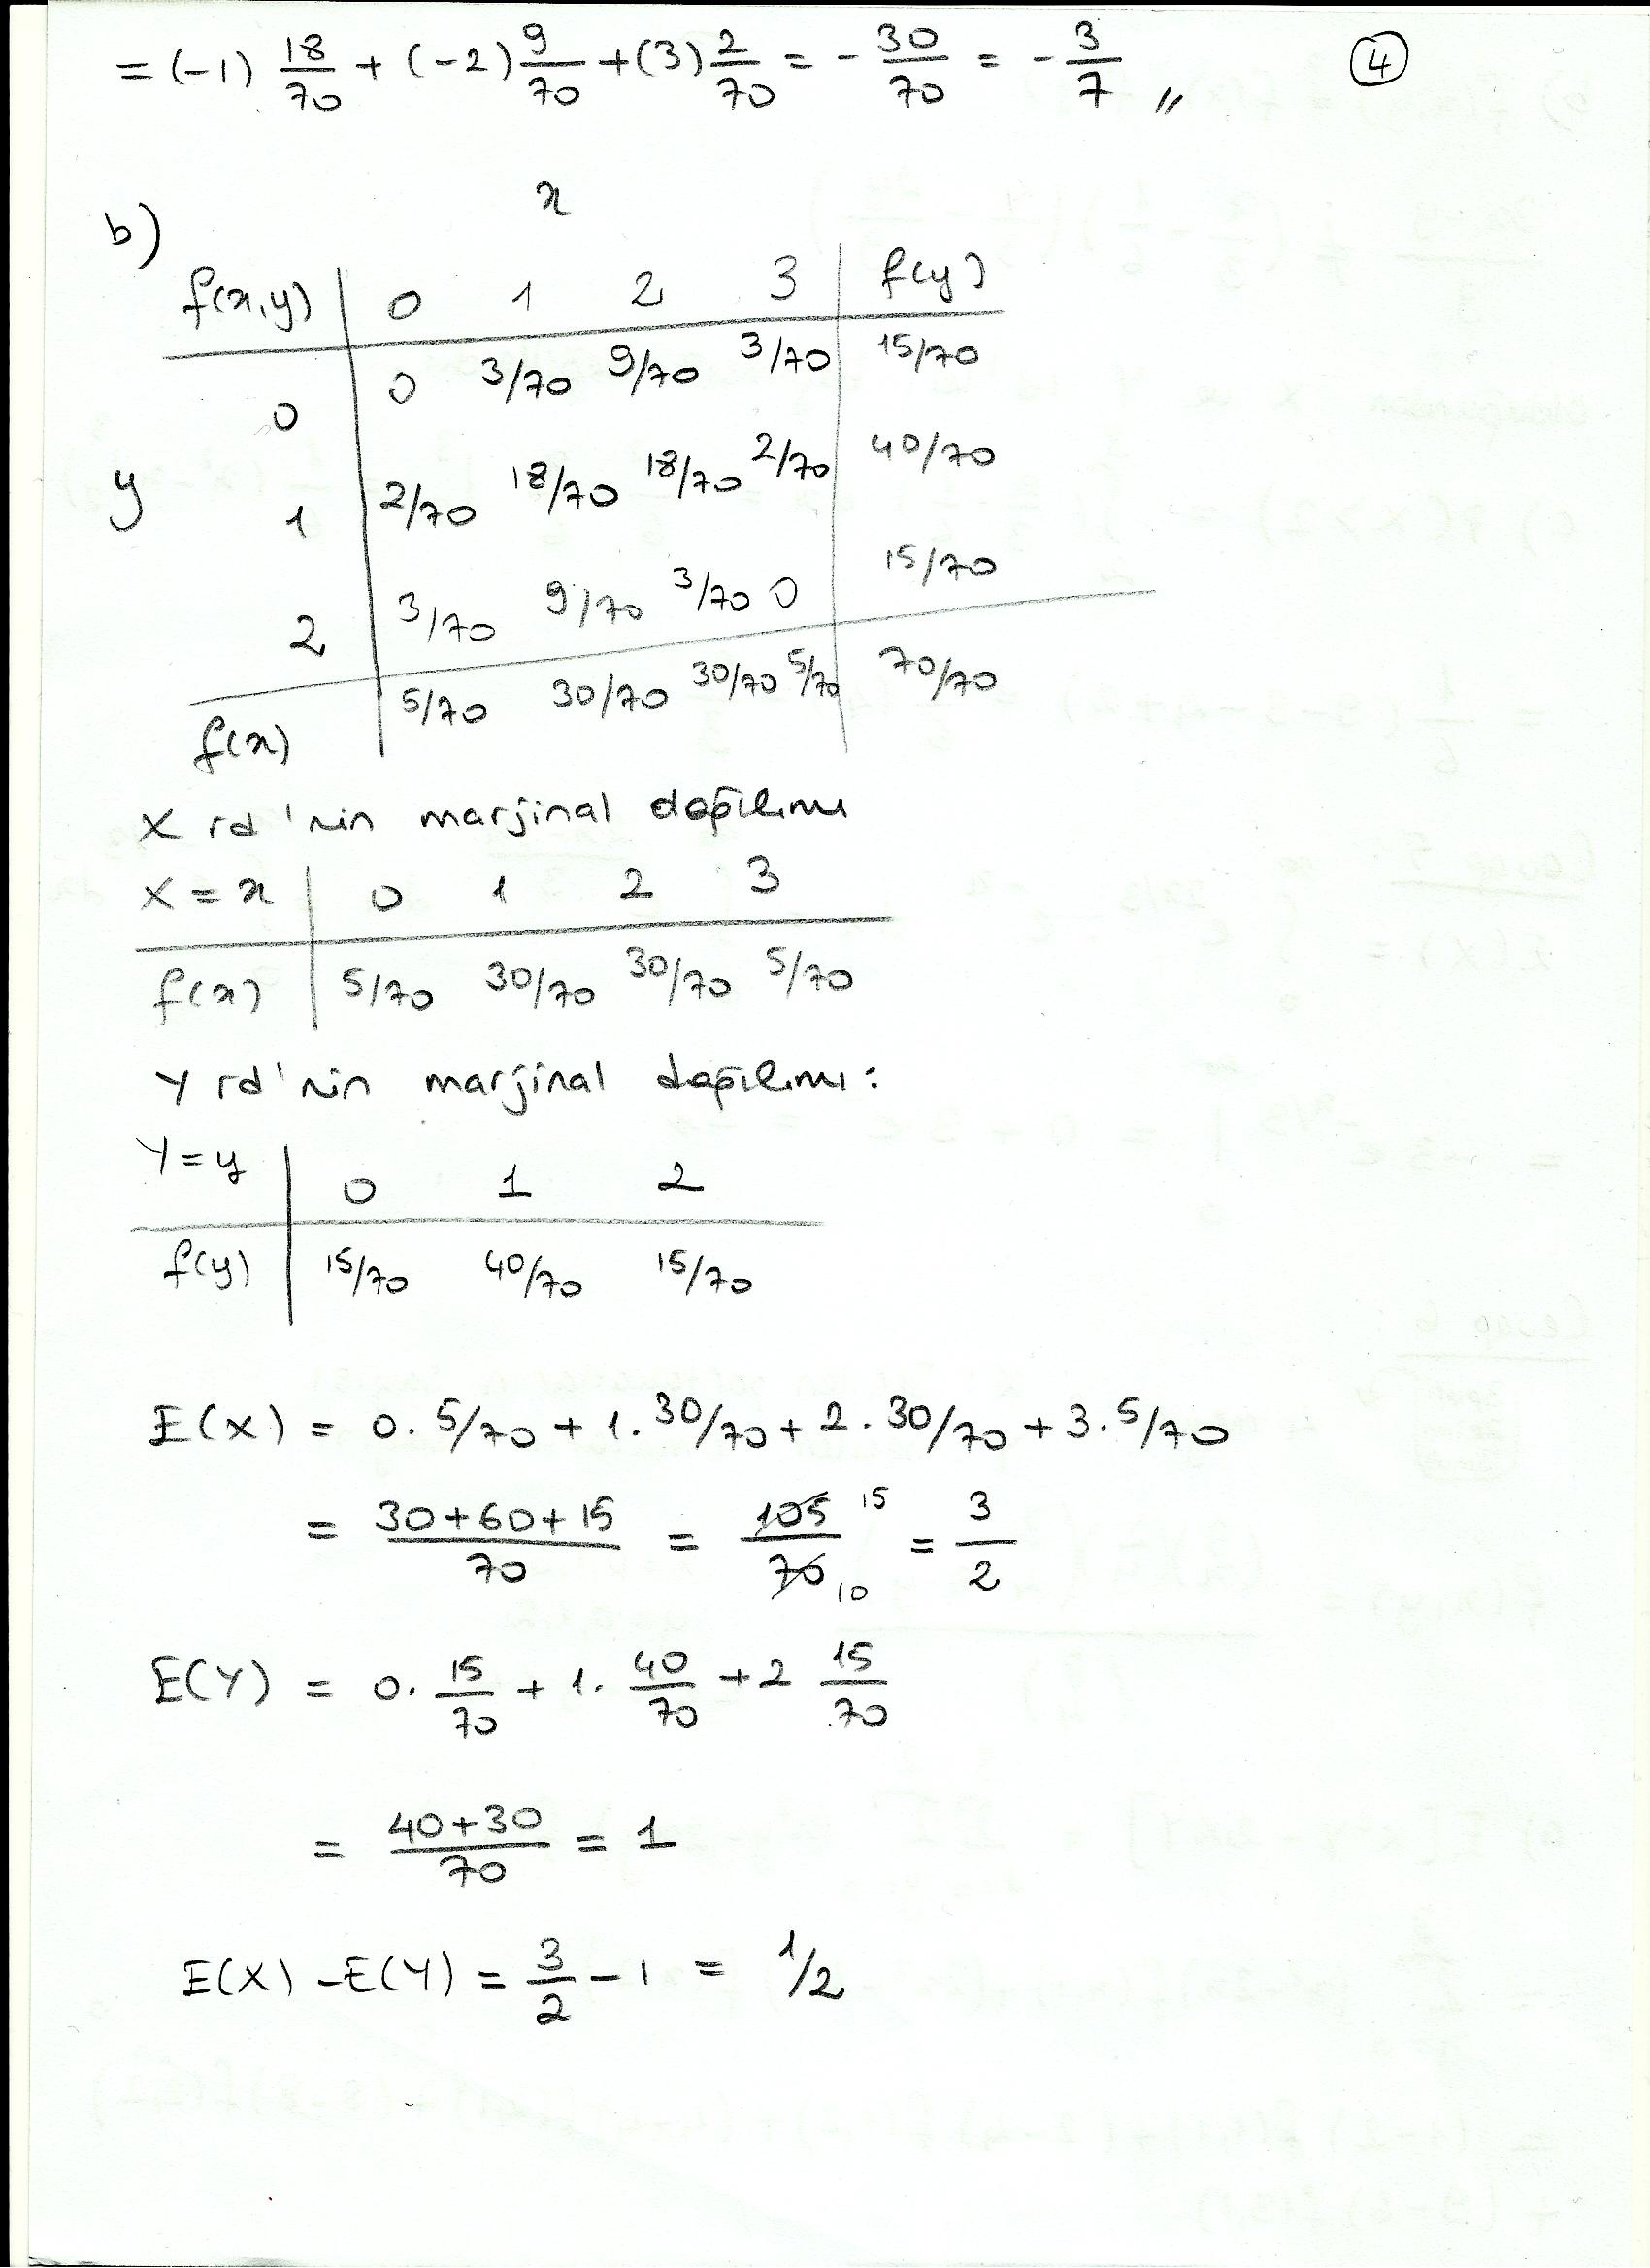 = (-1) 18/70 + (-2) 9/70 + (3) 2/70 = - 30/70 = - 3/7 ,,
4
x
b)
f(x,y) 0 1 2 3 f(y)
0 0 3/70 9/70 3/70 15/70
y 1 2/70 18/70 18/70 2/70 40/70
2 3/70 9/70 3/70 0 15/70
f(x) 5/70 30/70 30/70 5/70 70/70
X rd'nin marjinal dağılımı
X = x 0 1 2 3
f(x) 5/70 30/70 30/70 5/70
Y rd'nin marjinal dağılımı:
Y=y 0 1 2
f(y) 15/70 40/70 15/70
E(X) = 0. 5/70 + 1. 30/70 + 2. 30/70 + 3. 5/70
= 30+60+15/70 = 105/70 15 10 = 3/2
E(Y) = 0. 15/70 + 1. 40/70 + 2 15/70
= 40+30/70 = 1
E(X) - E(Y) = 3/2 - 1 = 1/2